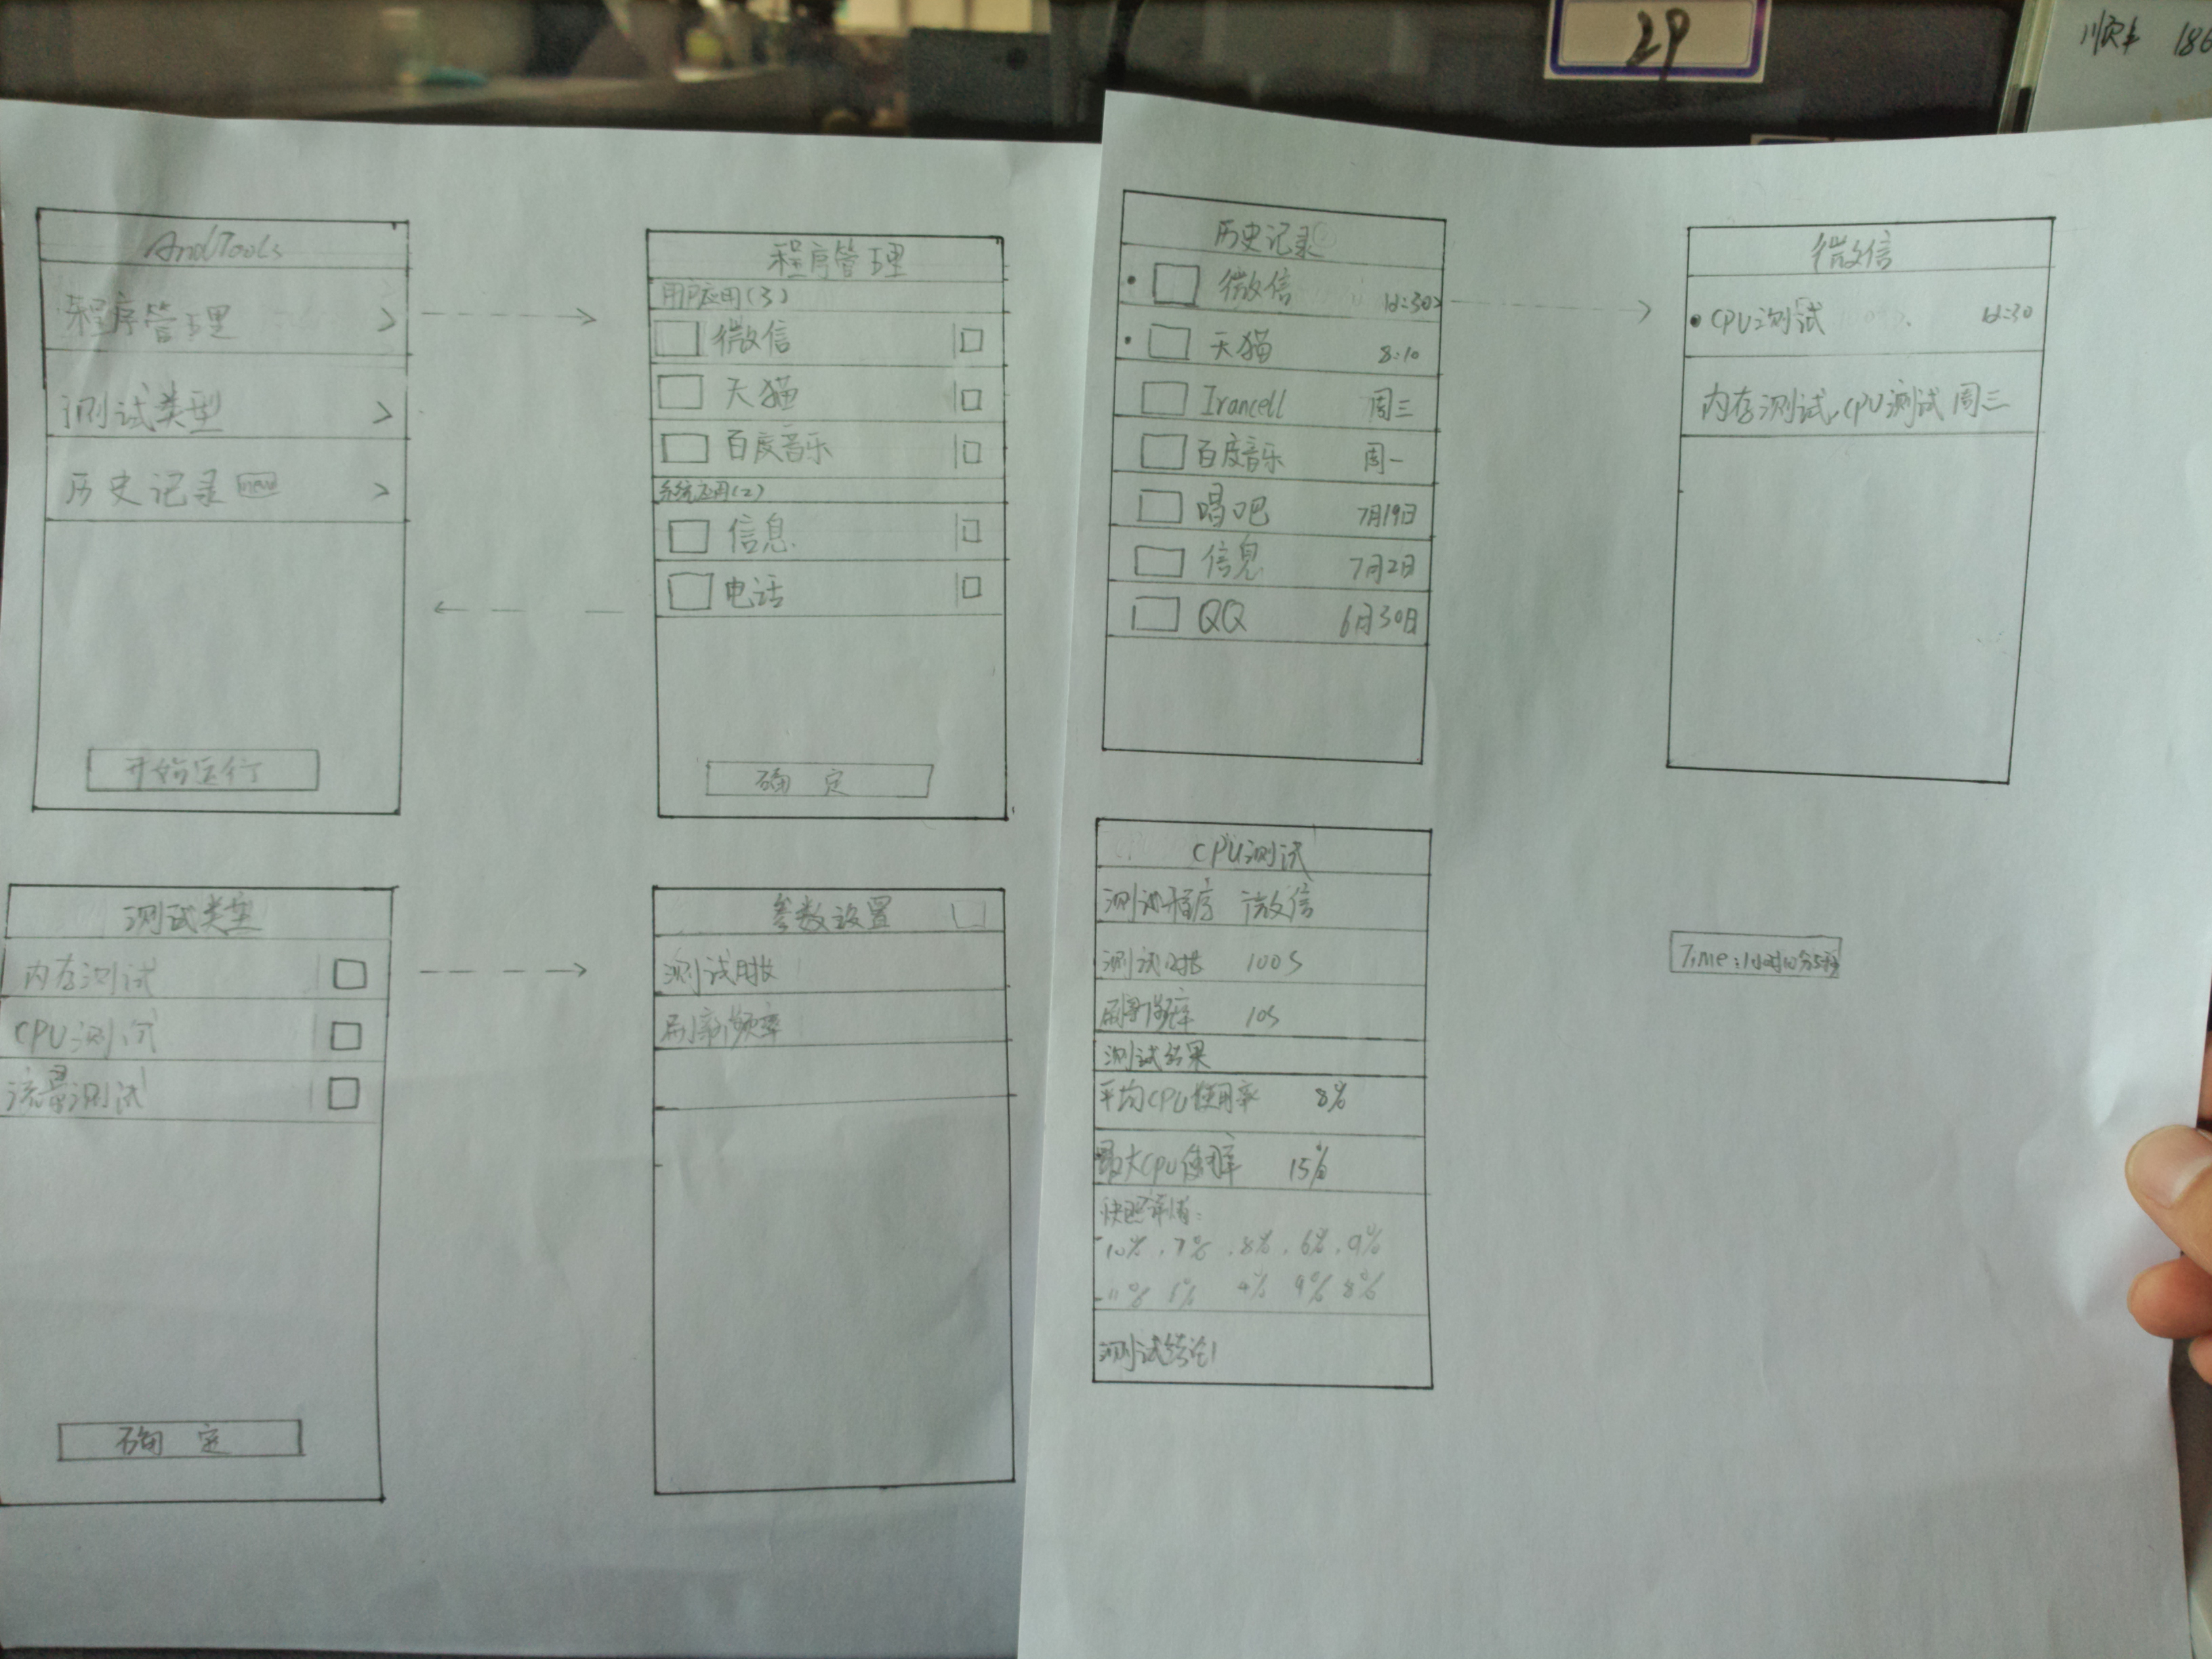 29
顺丰 186
AndTools
程序管理 >
测试类型 >
历史记录 new >
开始运行
程序管理
用户应用(3)
微信
天猫
百度音乐
系统应用(2)
信息
电话
确 定
测试类型
内存测试
CPU测试
流量测试
确 定
参数设置
测试时长
刷新频率
历史记录
微信
天猫 8:10
Irancell 周三
百度音乐 周一
唱吧 7月19日
信息 7月2日
QQ 6月30日
微信
CPU测试
内存测试,CPU测试 周三
CPU测试
测试程序 微信
测试时长 100S
刷新频率 10S
测试结果
平均CPU使用率 8%
最大CPU使用率 15%
快照详情:
10%,7%,8%,6%,9%
11% 4% 9% 8%
测试结论
Time:1小时10分5秒